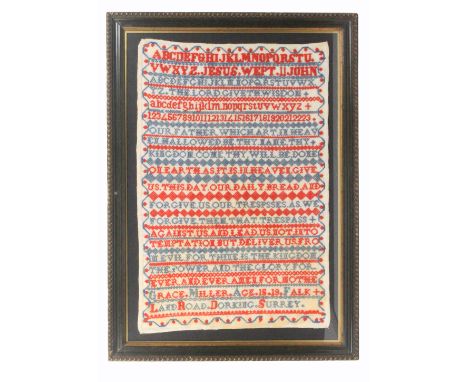 ABCDEFGHIJKLMNOPQRSTU
VWXYZ.JESUS.WEPT.11JOHN
ABCDEFGHIJKLMNOPQRSTUVWX
YZ.THE.LORD.GIVETH.WISDOM+
abcdefghijklmnopqrstuvwxyz+
1234567891011121314151617181920212223+
OUR.FATHER.WHICH.ART.IN.HEAV
EN.HALLOWED.BE.THY.NAME.THY+
KINGDOM.COME.THY.WILL.BE.DONE
ON.EARTH.AS.IT.IS.IN.HEAVEN.GIVE
US.THIS.DAY.OUR.DAILY.BREAD.AND
FORGIVE.US.OUR.TRESPSSES.AS.WE
FORGIVE.THEM.THAT.TRESPASS+
AGAINST.US.AND.LEAD.US.NOT.INTO
TEMPTATION.BUT.DELIVER.US.FRO
M.EVIL.FOR.THINE.IS.THE.KINGDOM
THE.POWER.AND.THE.GLORY.FOR
EVER.AND.EVER.AMEN.FOR.MOTHE
GRACE.MILLER.AGE.15.19.FALK+
LAND.ROAD.DORKING.SURREY.